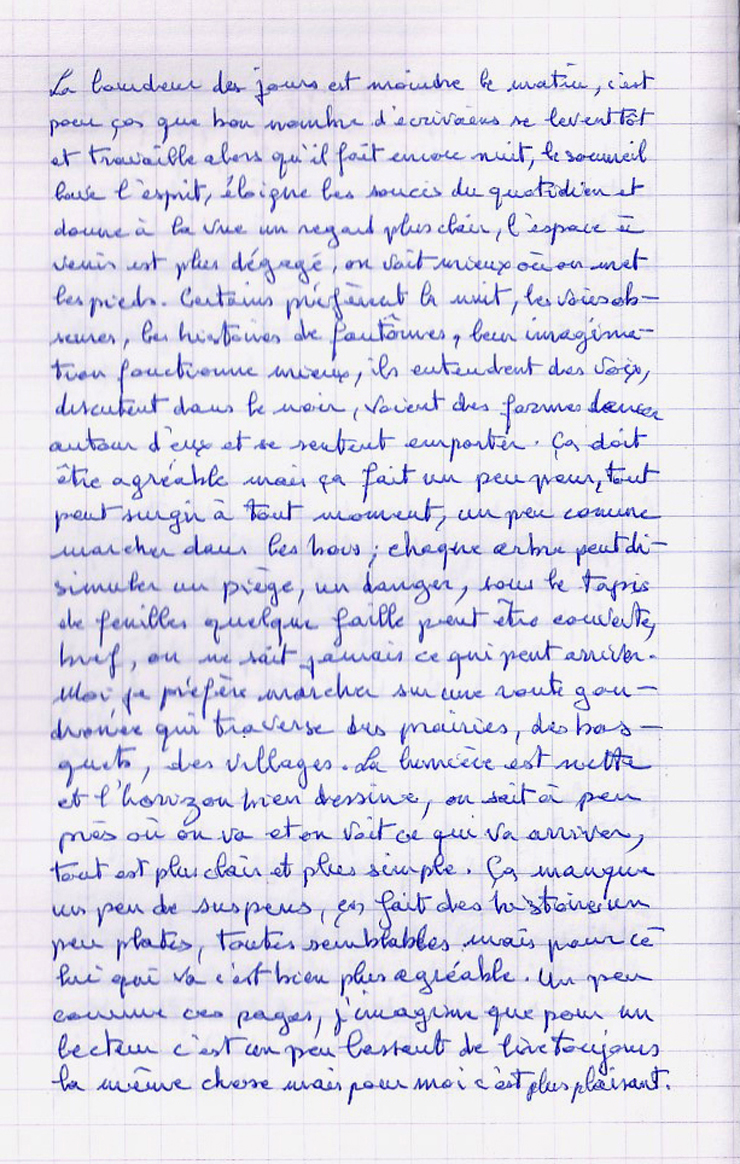 La lourdeur des jours est moindre le matin, c'est
pour ça que bon nombre d'écrivains se lèvent tôt
et travaille alors qu'il fait encore nuit, le sommeil
lave l'esprit, éloigne les soucis du quotidien et
donne à la vue un regard plus clair, l'espace à
venir est plus dégagé, on voit mieux où on met
les pieds. Certains préfèrent la nuit, les voies obs-
cures, les histoires de fantômes, leur imagina-
tion fonctionne mieux, ils entendent des voix,
discutent dans le noir, voient des formes danser
autour d'eux et se sentent emporter. Ça doit
être agréable mais ça fait un peu peur, tout
peut surgir à tout moment, un peu comme
marcher dans les bois ; chaque arbre peut di-
simuler un piège, un danger, sous le tapis
de feuilles quelque faille peut être couverte,
bref, on ne sait jamais ce qui peut arriver.
Moi je préfère marcher sur une route gou-
dronnée qui traverse des prairies, des bos-
quets, des villages. La lumière est nette
et l'horizon bien dessiné, on sait à peu
près où on va et on voit ce qui va arriver,
tout est plus clair et plus simple. Ça manque
un peu de suspens, ça fait des histoires un
peu plates, toutes semblables mais pour ce
lui qui va c'est bien plus agréable. Un peu
comme ces pages, j'imagine que pour un
lecteur c'est un peu lassant de lire toujours
la même chose mais pour moi c'est plus plaisant.